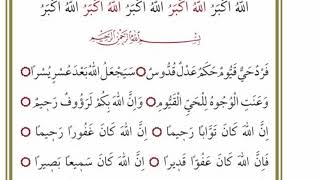 اَللّٰهُ اَكْبَرُ اَللّٰهُ اَكْبَرُ اَللّٰهُ اَكْبَرُ اَللّٰهُ اَكْبَرُ اَللّٰهُ اَكْبَرُ
بِسْمِ اللّٰهِ الرَّحْمٰنِ الرَّحِيمِ
فَرْدٌ حَيٌّ قَيُّومٌ حَكَمٌ عَدْلٌ قُدُّوسٌ سَيَجْعَلُ اللّٰهُ بَعْدَ عُسْرٍ يُسْرًا
وَعَنَتِ الْوُجُوهُ لِلْحَيِّ الْقَيُّومِ وَاِنَّ اللّٰهَ بِكُمْ لَرَؤُوفٌ رَحِيمٌ
اِنَّ اللّٰهَ كَانَ تَوَّابًا رَحِيمًا اِنَّ اللّٰهَ كَانَ غَفُورًا رَحِيمًا
فَاِنَّ اللّٰهَ كَانَ عَفُوًّا قَدِيرًا اِنَّ اللّٰهَ كَانَ سَمِيعًا بَصِيرًا